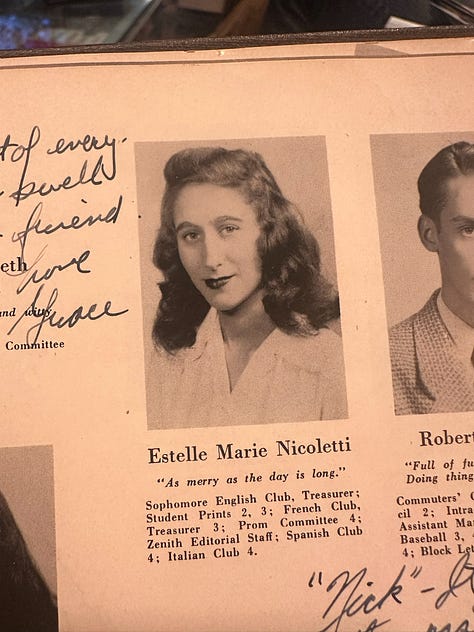 t of every-
swell
friend
love
Grace
eth
and witty
Committee
Estelle Marie Nicoletti
"As merry as the day is long."
Sophomore English Club, Treasurer;
Student Prints 2, 3; French Club,
Treasurer 3; Prom Committee 4;
Zenith Editorial Staff; Spanish Club
4; Italian Club 4.
Robert
"Full of fu
Doing thing
Commuters' C
cil 2; Intra
Assistant Ma
Baseball 3, 
4; Block Let
"Nick"-